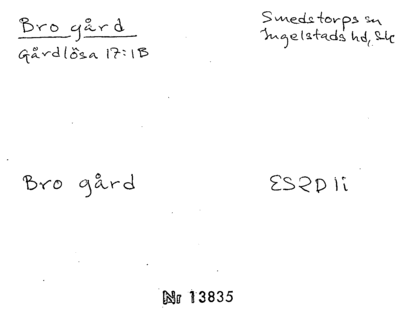 Bro gård
Gårdlösa 17:1B
Smedstorps sn
Ingelstads hd, Sk
Bro gård
ES2D1i
Nr 13835